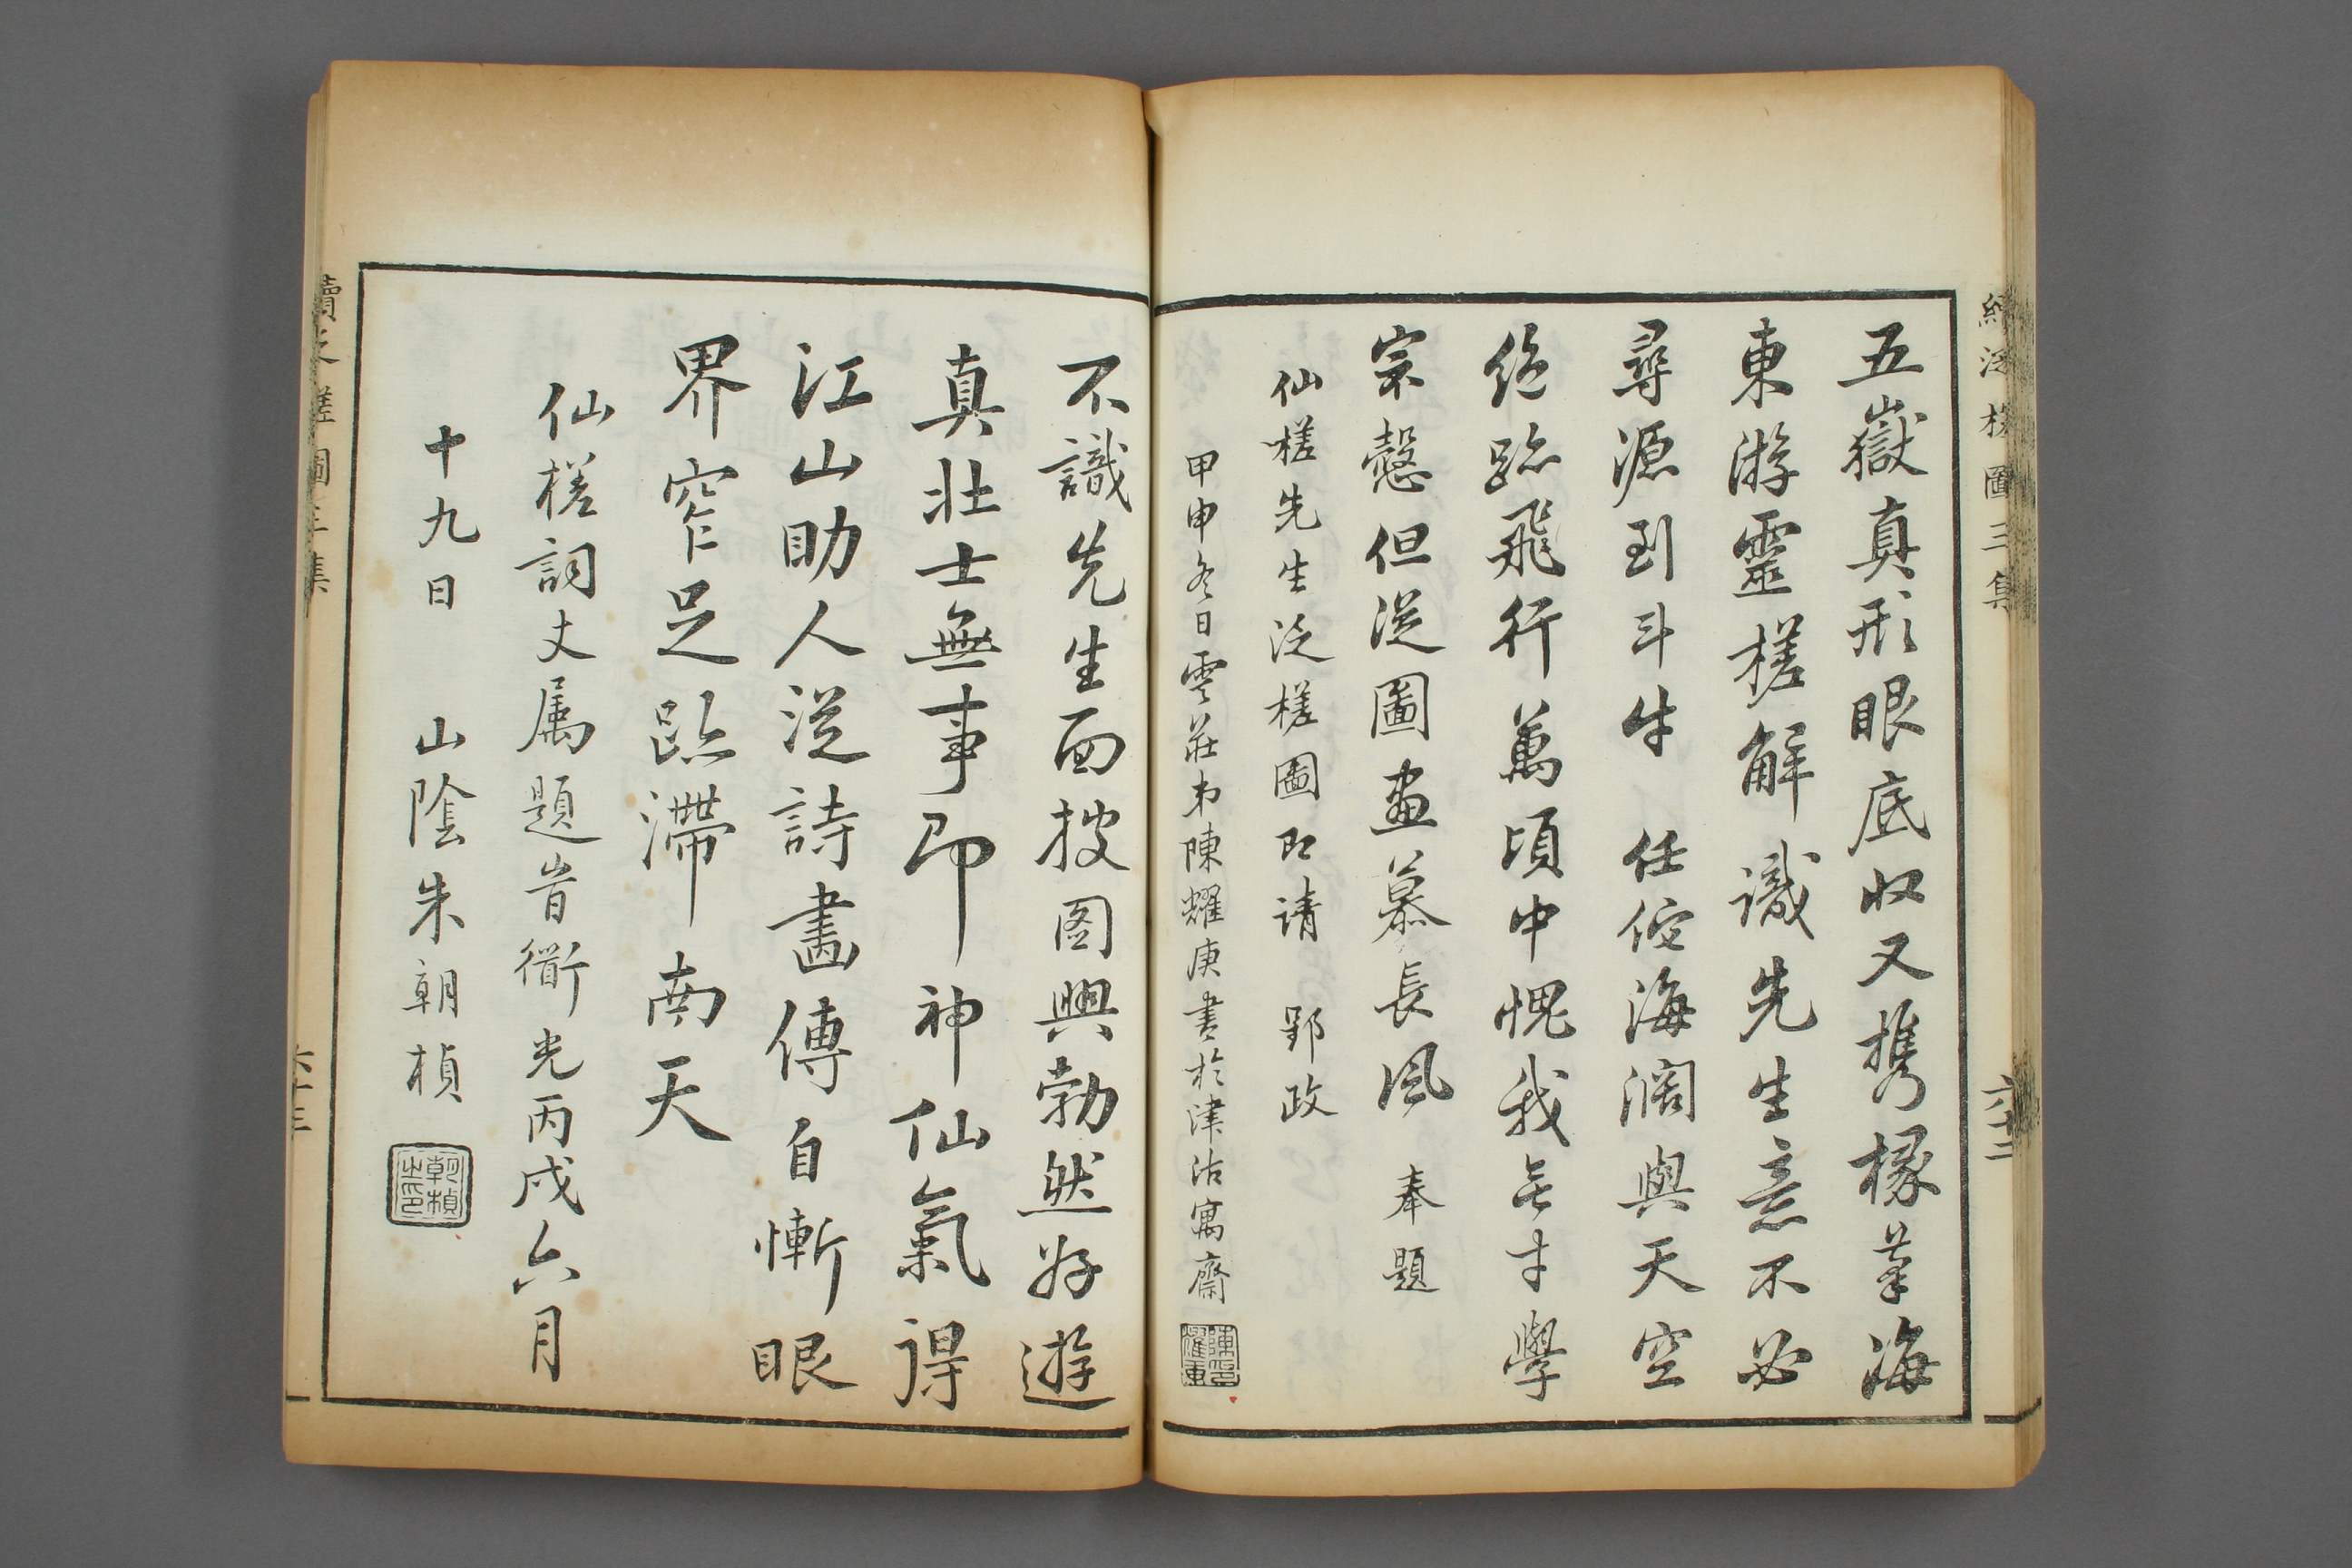 續泛槎圖三集
六十二
五嶽真形眼底收又携椽筆海
東游靈槎解識先生意不必
尋源到斗牛　任他海濶與天空
絕跡飛行萬頃中愧我無才學
宗慤但從圖畫慕長風　奉題
仙槎先生泛槎圖即請　郢政
甲申冬日雲莊弟陳耀庚書於津沽寓齋
不識先生面披图興勃然好遊
真壯士無事即神仙氣得
江山助人從詩畵傳自慚眼
界窄足跡滯南天
仙槎詞丈属題首衝光丙戌六月
十九日　山陰朱朝楨
朝楨之印
續泛槎圖三集
六十三